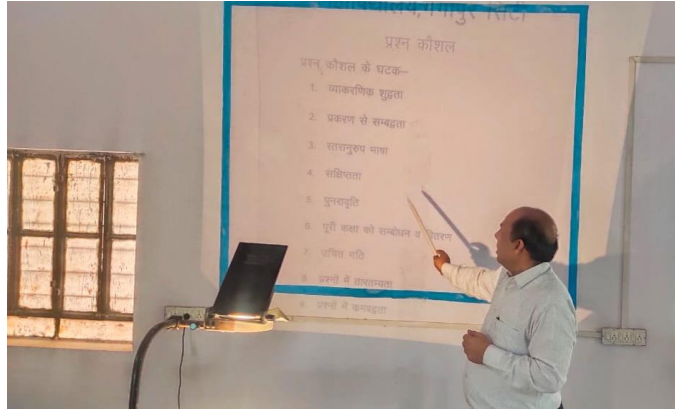 गंगापुर सिटी
प्रश्न कौशल
प्रश्न कौशल के घटक–
1. व्याकरणिक शुद्धता
2. प्रकरण से सम्बद्धता
3. स्तरानुरुप भाषा
4. संक्षिप्तता
5. पुनरावृति
6. पूरी कक्षा को सम्बोधन व वितरण
7. उचित गति
8. प्रश्नों में तारतम्यता
9. प्रश्नों में कमबद्वता